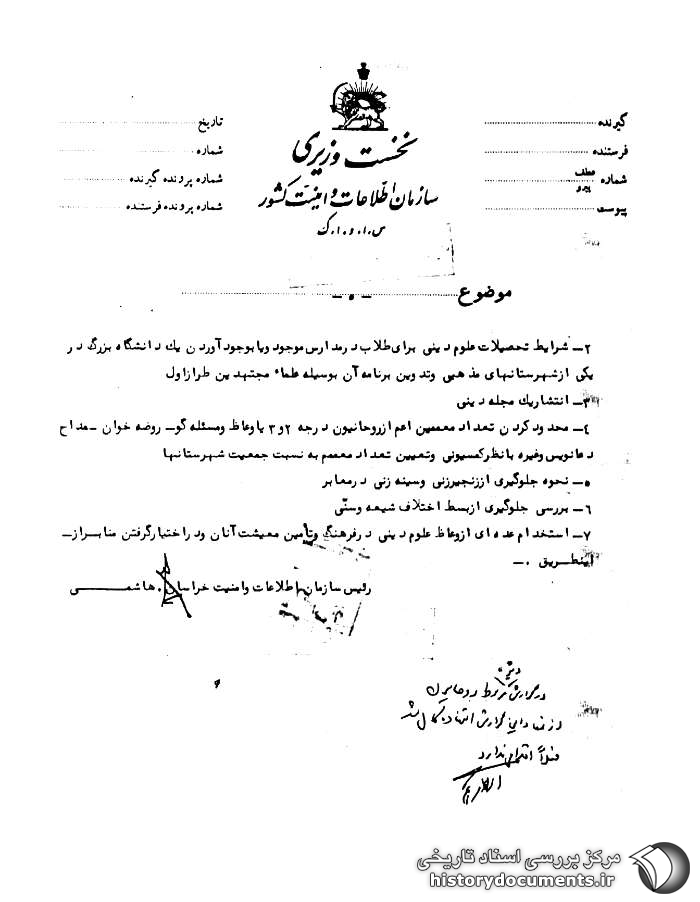 نخست وزیری
سازمان اطلاعات و امنیت کشور
س.ا.و.ا.ک
گیرنده
فرستنده
شماره عطف پیرو
پیوست
تاریخ
شماره
شماره پرونده گیرنده
شماره پرونده فرستنده
موضوع
۲ـ شرایط تحصیلات علوم دینی برای طلاب درمدارس موجود ویا بوجود آوردن یك دانشگاه بزرگ در
یکی ازشهرستانهای مذهبی وتدوین برنامه آن بوسیله علماء مجتهدین طرازاول
۳ـ انتشاریك مجله دینی
٤ـ محدود کردن تعداد معممین اعم ازروحانیون درجه ۲و۳ یاوعاظ ومسئله گوـ روضه خوان ـ مداح
دعانویس وغیره با نظرکمسیونی وتعیین تعداد معمم به نسبت جمعیت شهرستانها
٥ـ نحوه جلوگیری اززنجیرزنی وسینه زنی درمعابر
٦ـ بررسی جلوگیری ازبسط اختلاف شیعه وسنّی
۷ـ استخدام عده ای ازوعاظ علوم دینی درفرهنگ وتأمین معیشت آنان ودراختیارگرفتن منابرازـ
اینطریق .ـ
رئیس سازمان اطلاعات وامنیت خراسان . هاشمی
در گزارش مربوط
گزارش
فعلاً اقدامی ندارد
مرکز بررسی اسناد تاریخی
historydocuments.ir